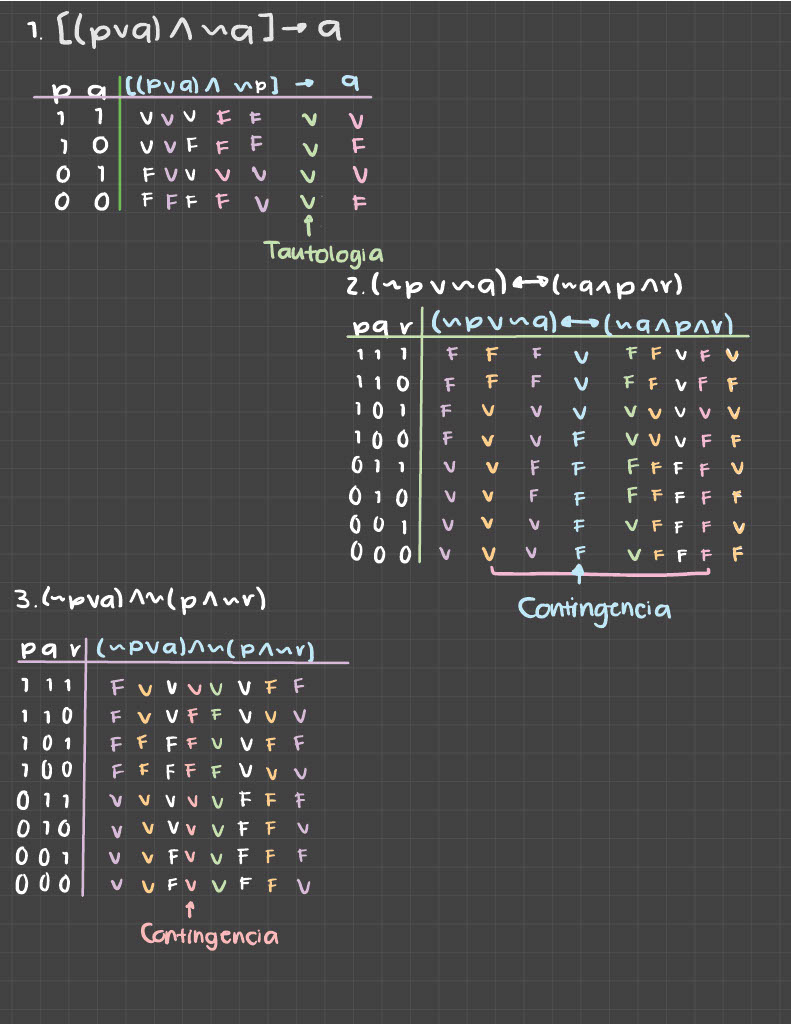 1. [(p∨a) ∧ ~a] → a
p a [(p∨a) ∧ ~p] → a
1 1 V V V F F V V
1 0 V V F F F V F
0 1 F V V V V V V
0 0 F F F F V V F
Tautologia
2. (~p ∨ ~a) ↔ (~a ∧ p ∧ r)
p a r (~p ∨ ~a) ↔ (~a ∧ p ∧ r)
1 1 1 F F F V F F V F V
1 1 0 F F F V F F V F F
1 0 1 F V V V V V V V V
1 0 0 F V V F V V V F F
0 1 1 V V F F F F F F V
0 1 0 V V F F F F F F F
0 0 1 V V V F V F F F V
0 0 0 V V V F V F F F F
Contingencia
3. (~p∨a) ∧ ~(p ∧ ~r)
p a r (~p∨a) ∧ ~(p ∧ ~r)
1 1 1 F V V V V V F F
1 1 0 F V V F F V V V
1 0 1 F F F F V V F F
1 0 0 F F F F F V V V
0 1 1 V V V V V F F F
0 1 0 V V V V V F F V
0 0 1 V V F V V F F F
0 0 0 V V F V V F F V
Contingencia